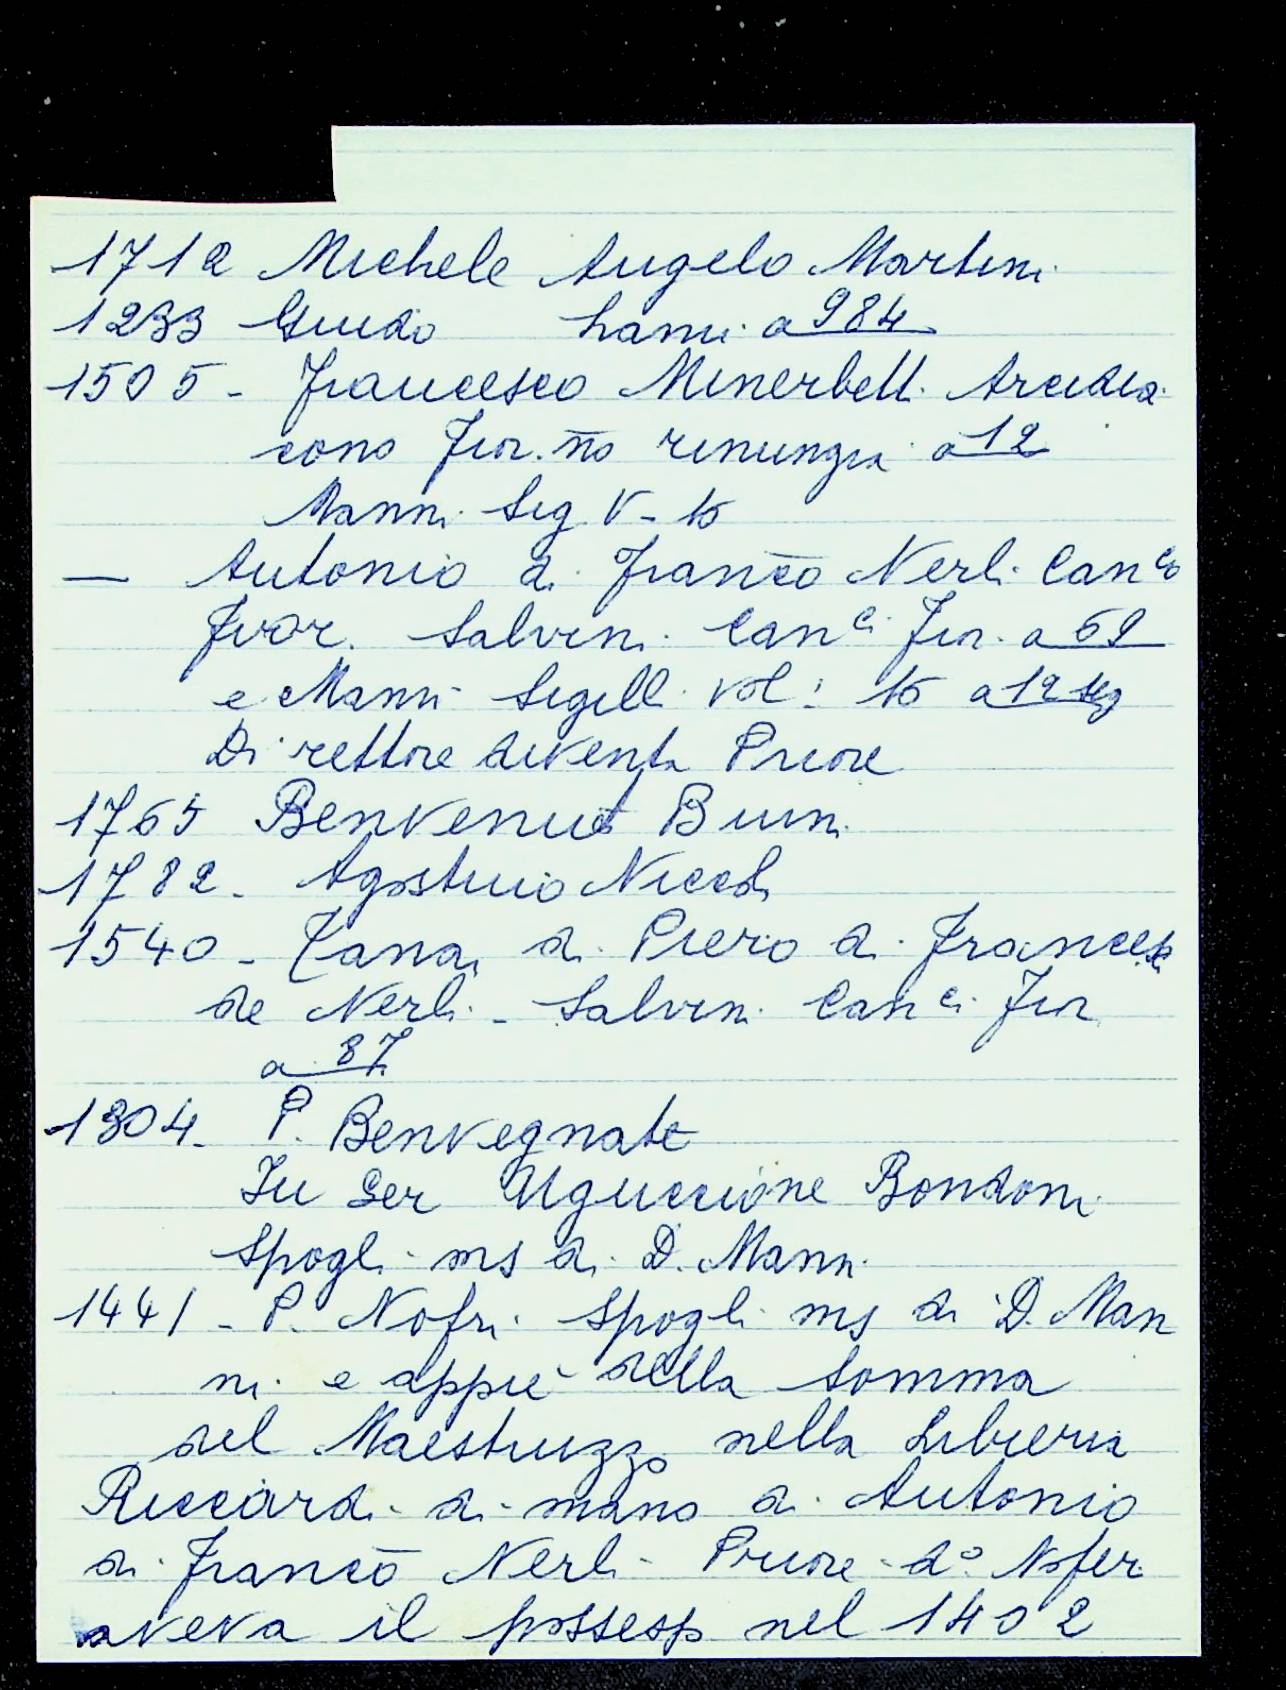 1712 Michele Angelo Martini
1233 Guido Lami a 984
1505 - Francesco Minerbetti Arcidia
cono Fior.no rinunzia a 12
Manni Sig. V - 15
— Antonio di Franco Nerli Canco
Fior. Salvini Canci Fior. a 69
e Manni Sigilli vol: 15 a 12 seg
Direttore diventa Priore
1765 Benvenuti Buini
1782 - Agostino Niccoli
1540 - Tanai di Piero di Francesco
de Nerli - Salvini Canci Fior
a 87
1304 - P. Benvegnate
In Ser Uguccione Bondoni
Spogli ms di D. Manni
1441 - P. Nofri Spogli ms di D. Man
ni e appiè della Somma
del Maestruzzo nella Libreria
Riccardi di mano di Antonio
di Franco Nerli Priore do Nofri
aveva il possesso nel 1402